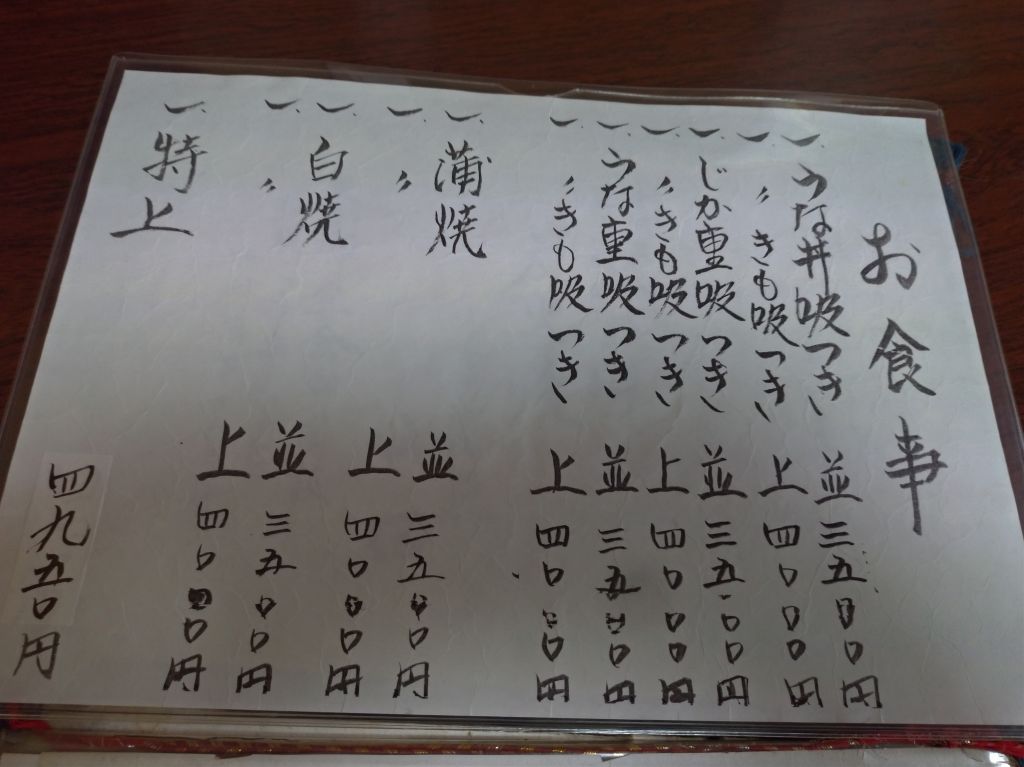 お食事
一、うな丼吸つき 並 三五〇〇円
一、〃きも吸つき 上 四〇〇〇円
一、じか重吸つき 並 三五〇〇円
一、〃きも吸つき 上 四〇〇〇円
一、うな重吸つき 並 三五〇〇円
一、〃きも吸つき 上 四〇〇〇円
一、蒲焼 並 三五〇〇円
一、〃 上 四〇〇〇円
一、白焼 並 三五〇〇円
一、〃 上 四〇〇〇円
一、特上 四九五〇円